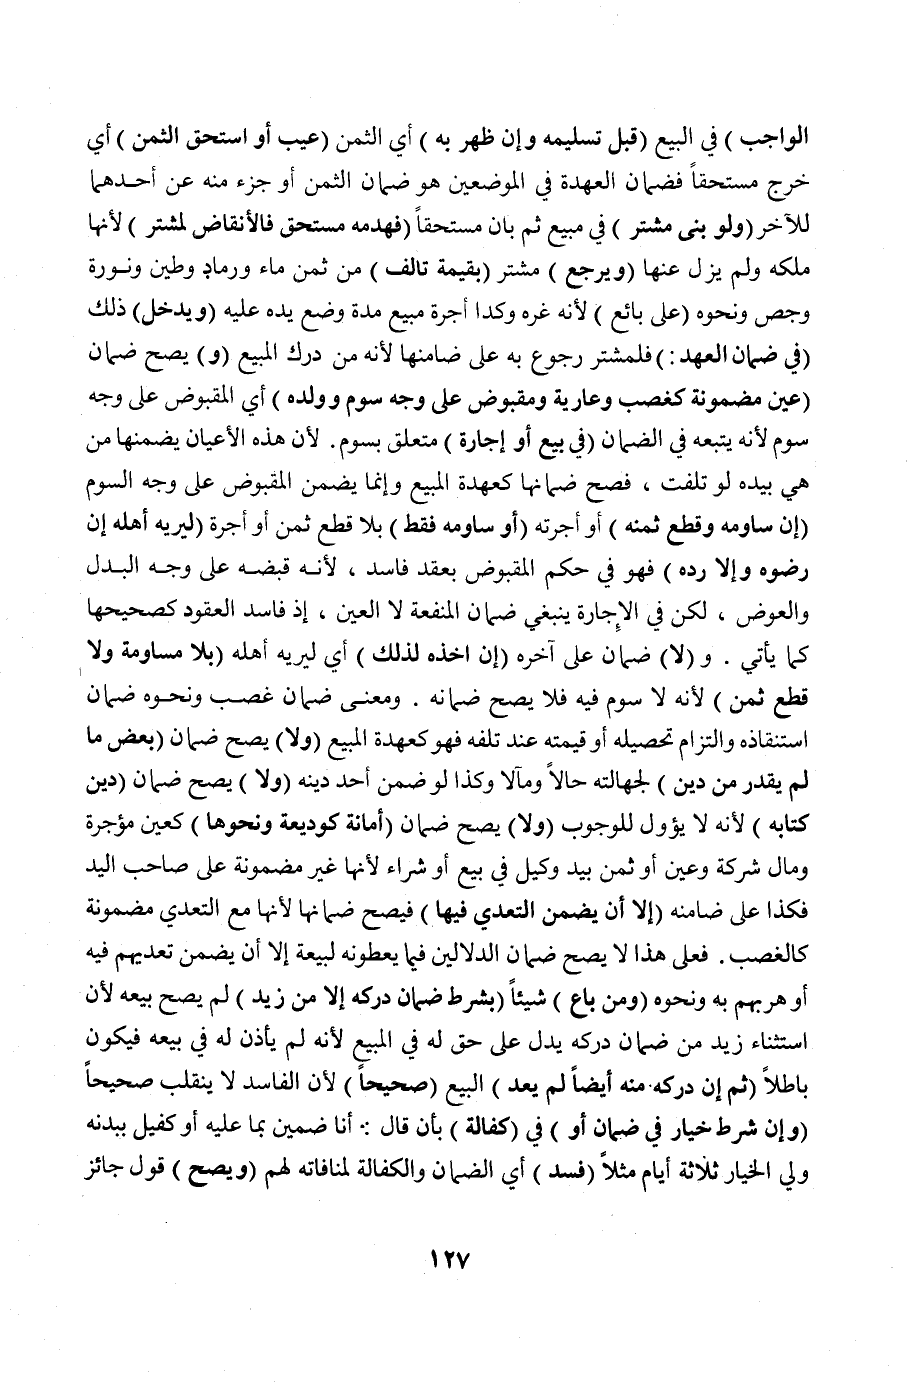 الواجب ) في البيع (قبل تسليمه وإن ظهر به ) أي الثمن (عيب أو استحق الثمن ) أي
خرج مستحقاً فضمان العهدة في الموضعين هو ضمان الثمن أو جزء منه عن أحدهما
للآخر (ولو بنى مشتر ) في مبيع ثم بان مستحقاً (فهدمه مستحق فالأنقاض لمشتر ) لأنها
ملكه ولم يزل عنها (ويرجع ) مشتر (بقيمة تالف ) من ثمن ماء ورماد وطين ونورة
وجص ونحوه (على بائع ) لأنه غره وكدا أجرة مبيع مدة وضع يده عليه (ويدخل) ذلك
(في ضمان العهد : ) فلمشتر رجوع به على ضامنها لأنه من درك المبيع (و) يصح ضمان
(عين مضمونة كغصب وعارية ومقبوض على وجه سوم وولده ) أي المقبوض على وجه
سوم لأنه يتبعه في الضمان (في بيع أو إجارة ) متعلق بسوم . لأن هذه الأعيان يضمنها من
هي بيده لو تلفت ، فصح ضمانها كعهدة المبيع وإنما يضمن المقبوض على وجه السوم
(إن ساومه وقطع ثمنه ) أو أجرته (أو ساومه فقط ) بلا قطع ثمن أو أجرة (ليريه أهله إن
رضوه وإلا رده ) فهو في حكم المقبوض بعقد فاسد ، لأنه قبضه على وجه البدل
والعوض ، لكن في الإجارة ينبغي ضمان المنفعة لا العين ، إذ فاسد العقود كصحيحها
كما يأتي . و (لا) ضمان على آخره (إن اخذه لذلك ) أي ليريه أهله (بلا مساومة ولا
قطع ثمن ) لأنه لا سوم فيه فلا يصح ضمانه . ومعنى ضمان غصب ونحوه ضمان
استنقاذه والتزام تحصيله أو قيمته عند تلفه فهو كعهدة المبيع (ولا) يصح ضمان (بعض ما
لم يقدر من دين ) لجهالته حالاً ومآلا وكذا لو ضمن أحد دينه (ولا ) يصح ضمان (دين
كتابه ) لأنه لا يؤول للوجوب (ولا) يصح ضمان (أمانة كوديعة ونحوها ) كعين مؤجرة
ومال شركة وعين أو ثمن بيد وكيل في بيع أو شراء لأنها غير مضمونة على صاحب اليد
فكذا على ضامنه (إلا أن يضمن التعدي فيها ) فيصح ضمانها لأنها مع التعدي مضمونة
كالغصب . فعلى هذا لا يصح ضمان الدلالين فيما يعطونه لبيعة إلا أن يضمن تعديهم فيه
أو هربهم به ونحوه (ومن باع ) شيئاً (بشرط ضمان دركه إلا من زيد ) لم يصح بيعه لأن
استثناء زيد من ضمان دركه يدل على حق له في المبيع لأنه لم يأذن له في بيعه فيكون
باطلاً (ثم إن دركه منه أيضاً لم يعد ) البيع (صحيحاً ) لأن الفاسد لا ينقلب صحيحاً
(وإن شرط خيار في ضمان أو ) في (كفالة ) بأن قال : أنا ضمين بما عليه أو كفيل ببدنه
ولي الخيار ثلاثة أيام مثلاً (فسد ) أي الضمان والكفالة لمنافاته لهم (ويصح ) قول جائز
١٢٧